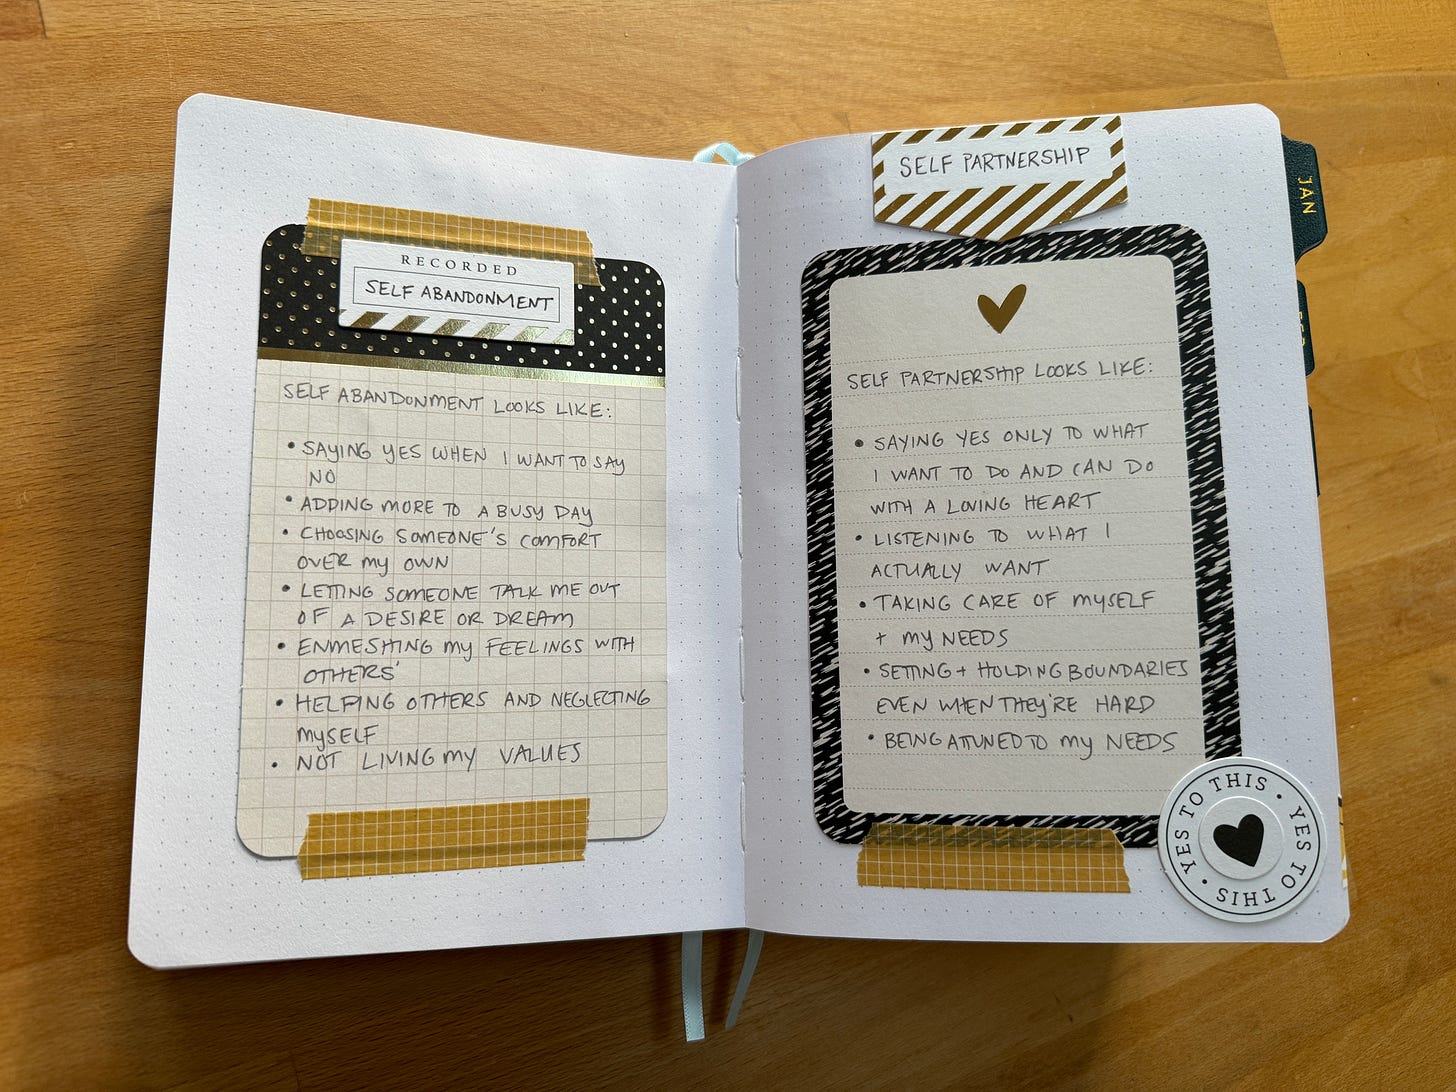 RECORDED
SELF ABANDONMENT
SELF ABANDONMENT LOOKS LIKE:
• SAYING YES WHEN I WANT TO SAY
NO
• ADDING MORE TO A BUSY DAY
• CHOOSING SOMEONE'S COMFORT
OVER MY OWN
• LETTING SOMEONE TALK ME OUT
OF A DESIRE OR DREAM
• ENMESHING MY FEELINGS WITH
OTHERS'
• HELPING OTHERS AND NEGLECTING
MYSELF
• NOT LIVING MY VALUES
SELF PARTNERSHIP
SELF PARTNERSHIP LOOKS LIKE:
• SAYING YES ONLY TO WHAT
I WANT TO DO AND CAN DO
WITH A LOVING HEART
• LISTENING TO WHAT I
ACTUALLY WANT
• TAKING CARE OF MYSELF
+ MY NEEDS
• SETTING + HOLDING BOUNDARIES
EVEN WHEN THEY'RE HARD
• BEING ATTUNED TO MY NEEDS
YES TO THIS • YES TO THIS • YES TO THIS •
JAN